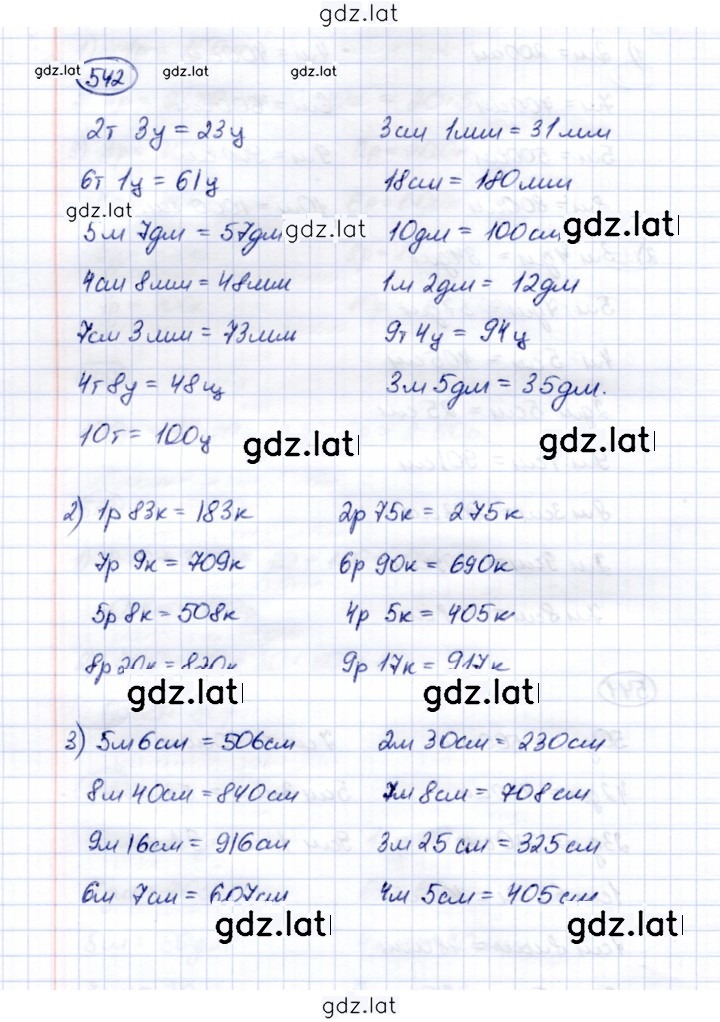 gdz.lat
gdz.lat 542 gdz.lat gdz.lat
2т 3ц = 23ц 3см 1мм = 31мм
6т 1ц = 61ц 18см = 180мм
gdz.lat
5м 7дм = 57дм gdz.lat 10дм = 100см gdz.lat
4см 8мм = 48мм 1м 2дм = 12дм
7см 3мм = 73мм 9т 4ц = 94ц
4т 8ц = 48ц 3м 5дм = 35дм.
10т = 100ц gdz.lat gdz.lat
2) 1р 83к = 183к 2р 75к = 275к
7р 9к = 709к 6р 90к = 690к
5р 8к = 508к 4р 5к = 405к
8р 20к = 820к 9р 17к = 917к
gdz.lat gdz.lat
3) 5м 6см = 506см 2м 30см = 230см
8м 40см = 840см 7м 8см = 708см
9м 16см = 916см 3м 25см = 325см
6м 7см = 607см 4м 5см = 405см
gdz.lat gdz.lat
gdz.lat